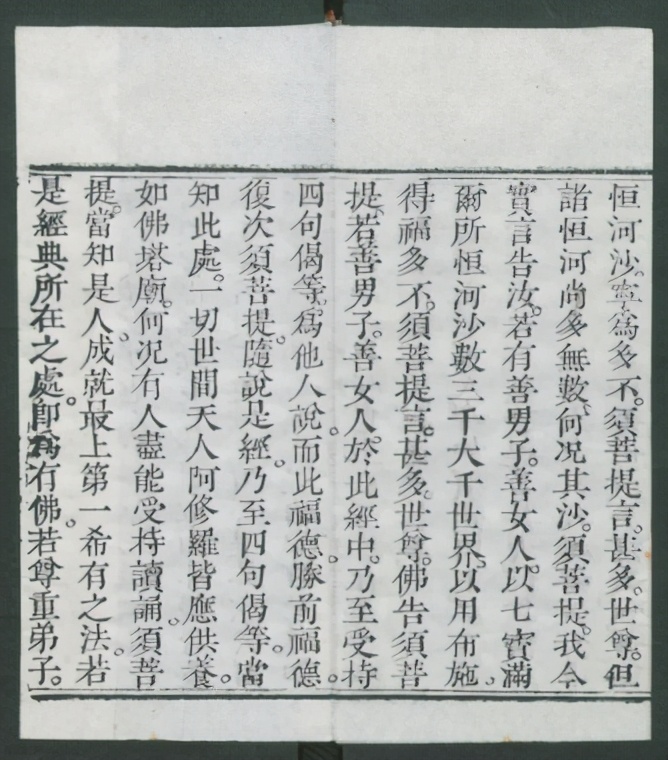 恒河沙。寧爲多不。須菩提言。甚多。世尊。但
諸恒河尚多無數。何况其沙。須菩提。我今
實言告汝。若有善男子。善女人。以七寶滿
爾所恒河沙數三千大千世界。以用布施。
得福多不。須菩提言。甚多。世尊。佛告須菩
提。若善男子。善女人。於此經中。乃至受持
四句偈等。爲他人說。而此福德。勝前福德。
復次須菩提。隨說是經。乃至四句偈等。當
知此處。一切世間天人阿修羅皆應供養。
如佛塔廟。何况有人盡能受持讀誦。須菩
提。當知是人。成就最上第一希有之法。若
是經典所在之處。即爲有佛。若尊重弟子。